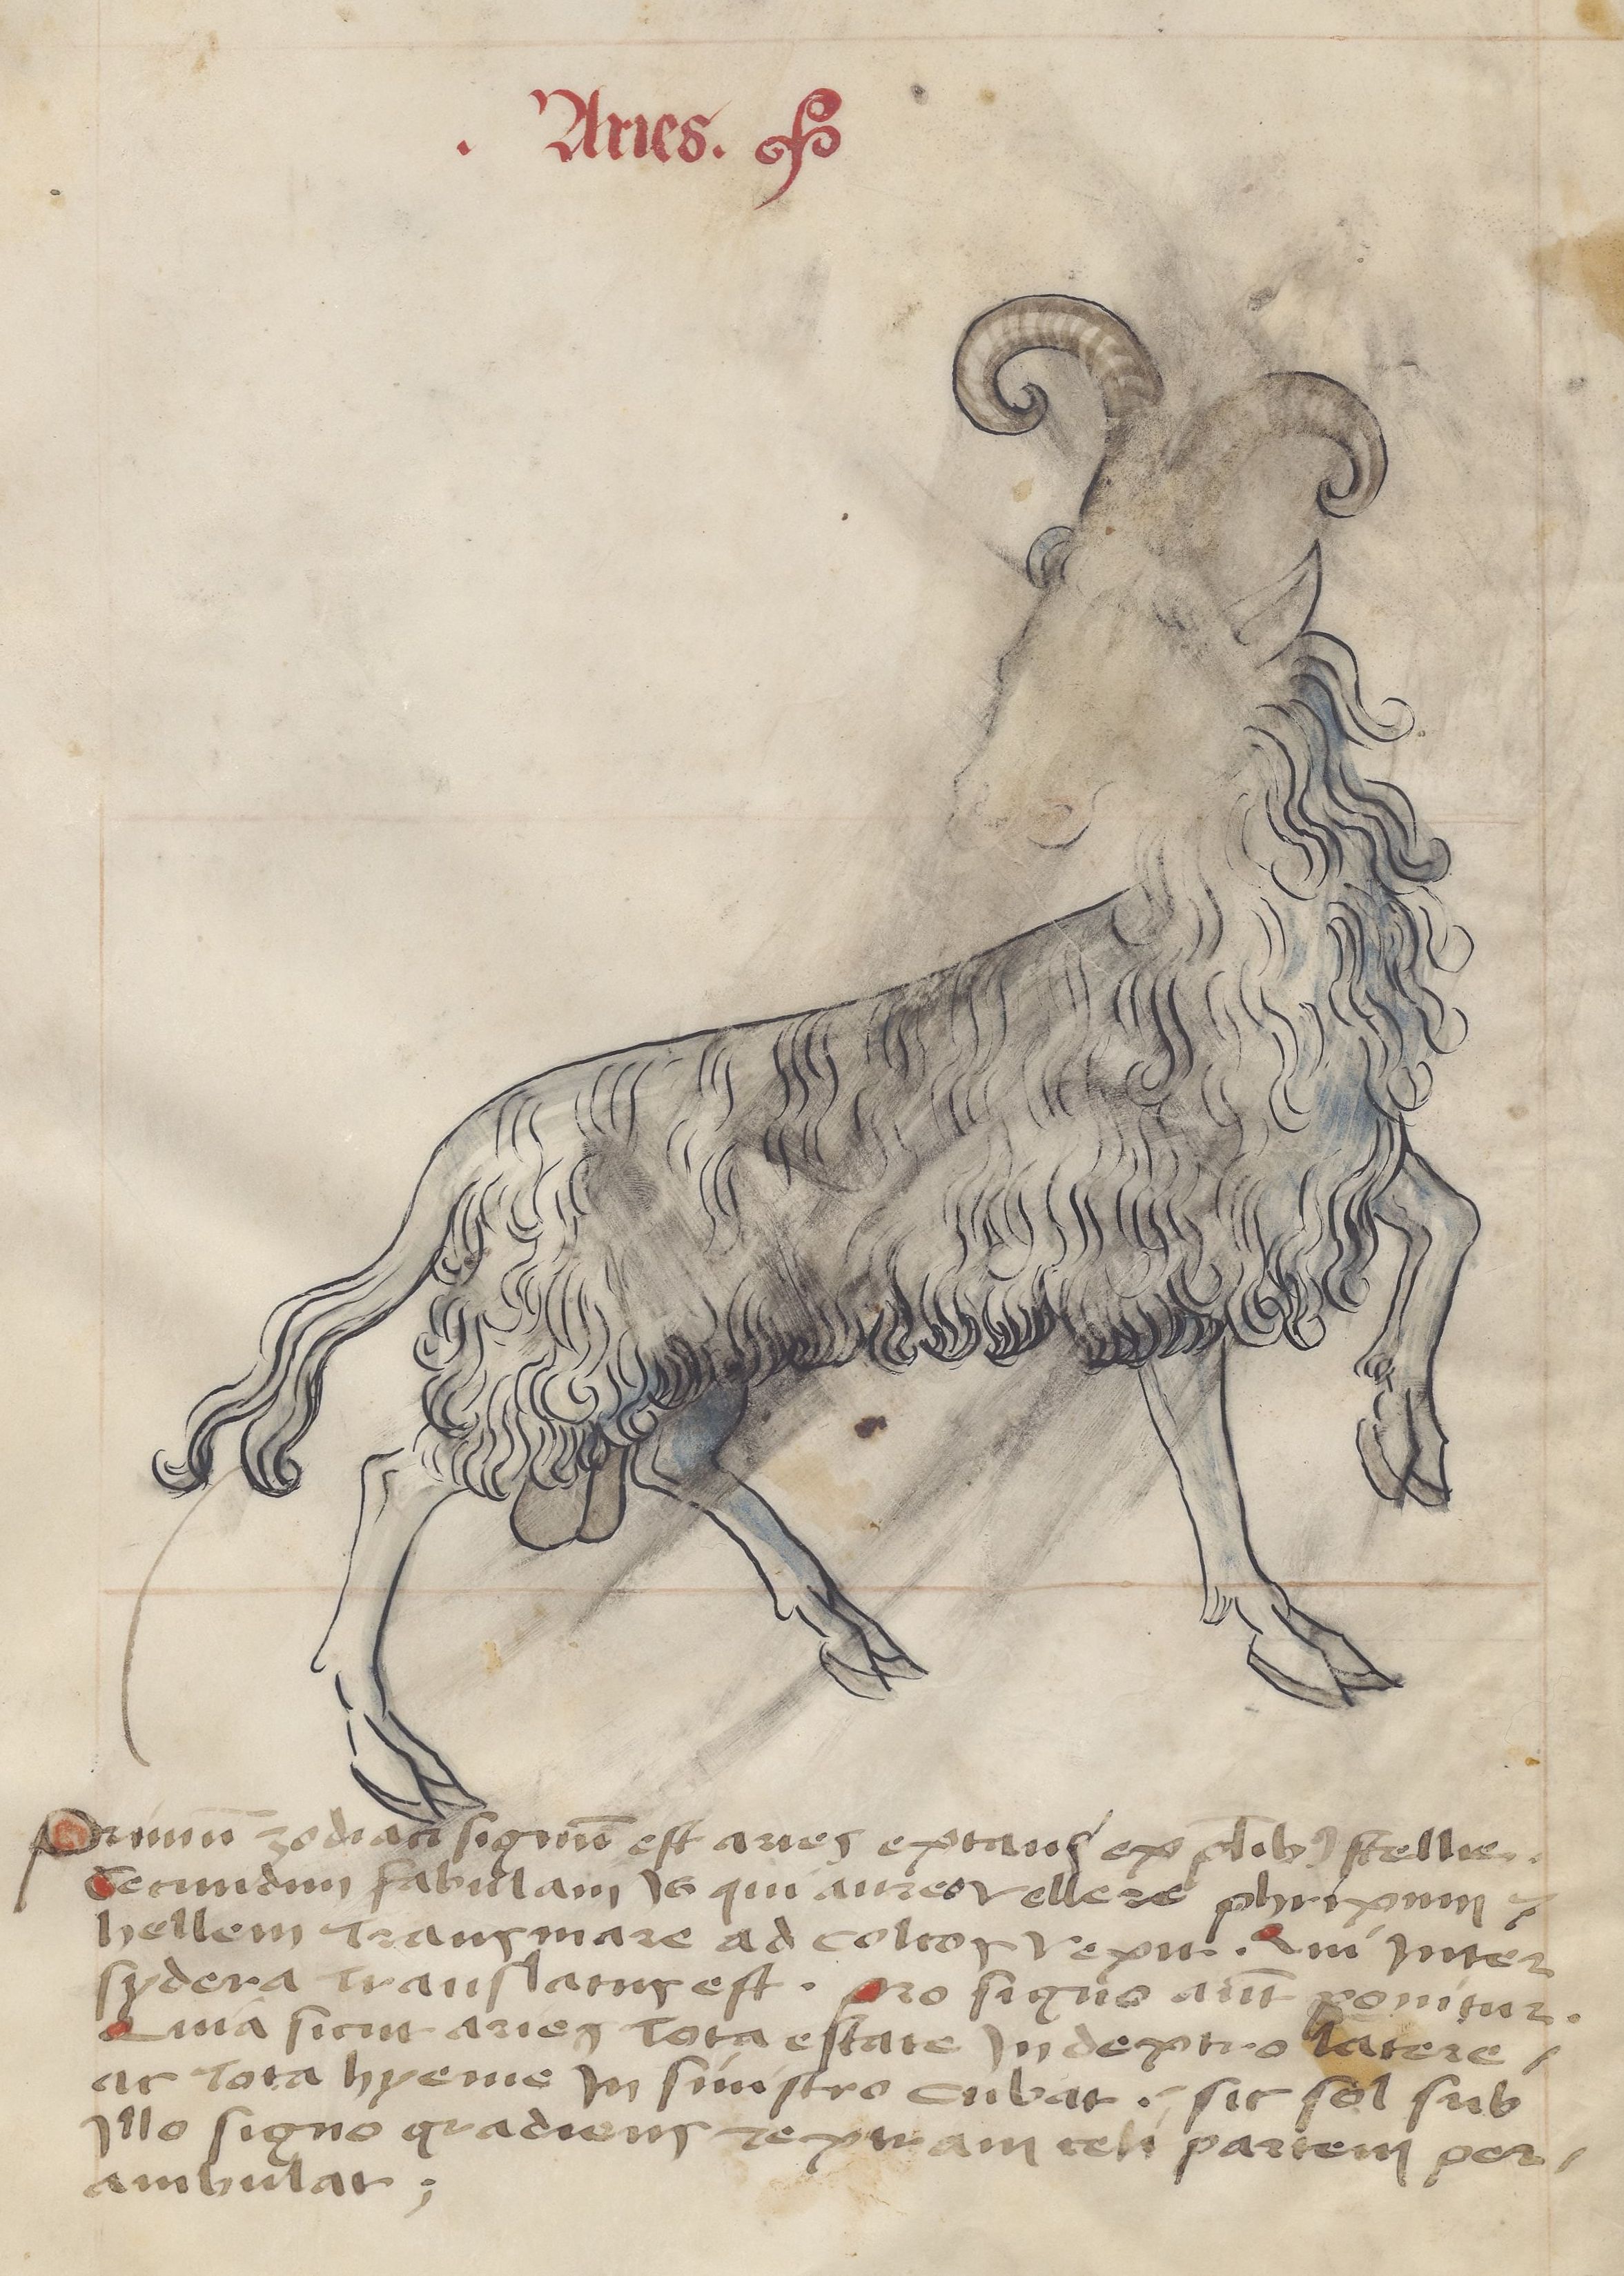 . Aries.
Primū zodiaci signū est aries extans ex stellis.
Secundum fabulam is qui aureo vellere phrixum &
hellem trans mare ad colcos vexit. Qui inter
sydera translatus est. Pro signo aūt ponitur.
Quia sicut aries tota estate in dextro latere /
ac tota hyeme in sinistro cubat. sic sol sub
illo signo gradiens celi partem per /
ambulat ;